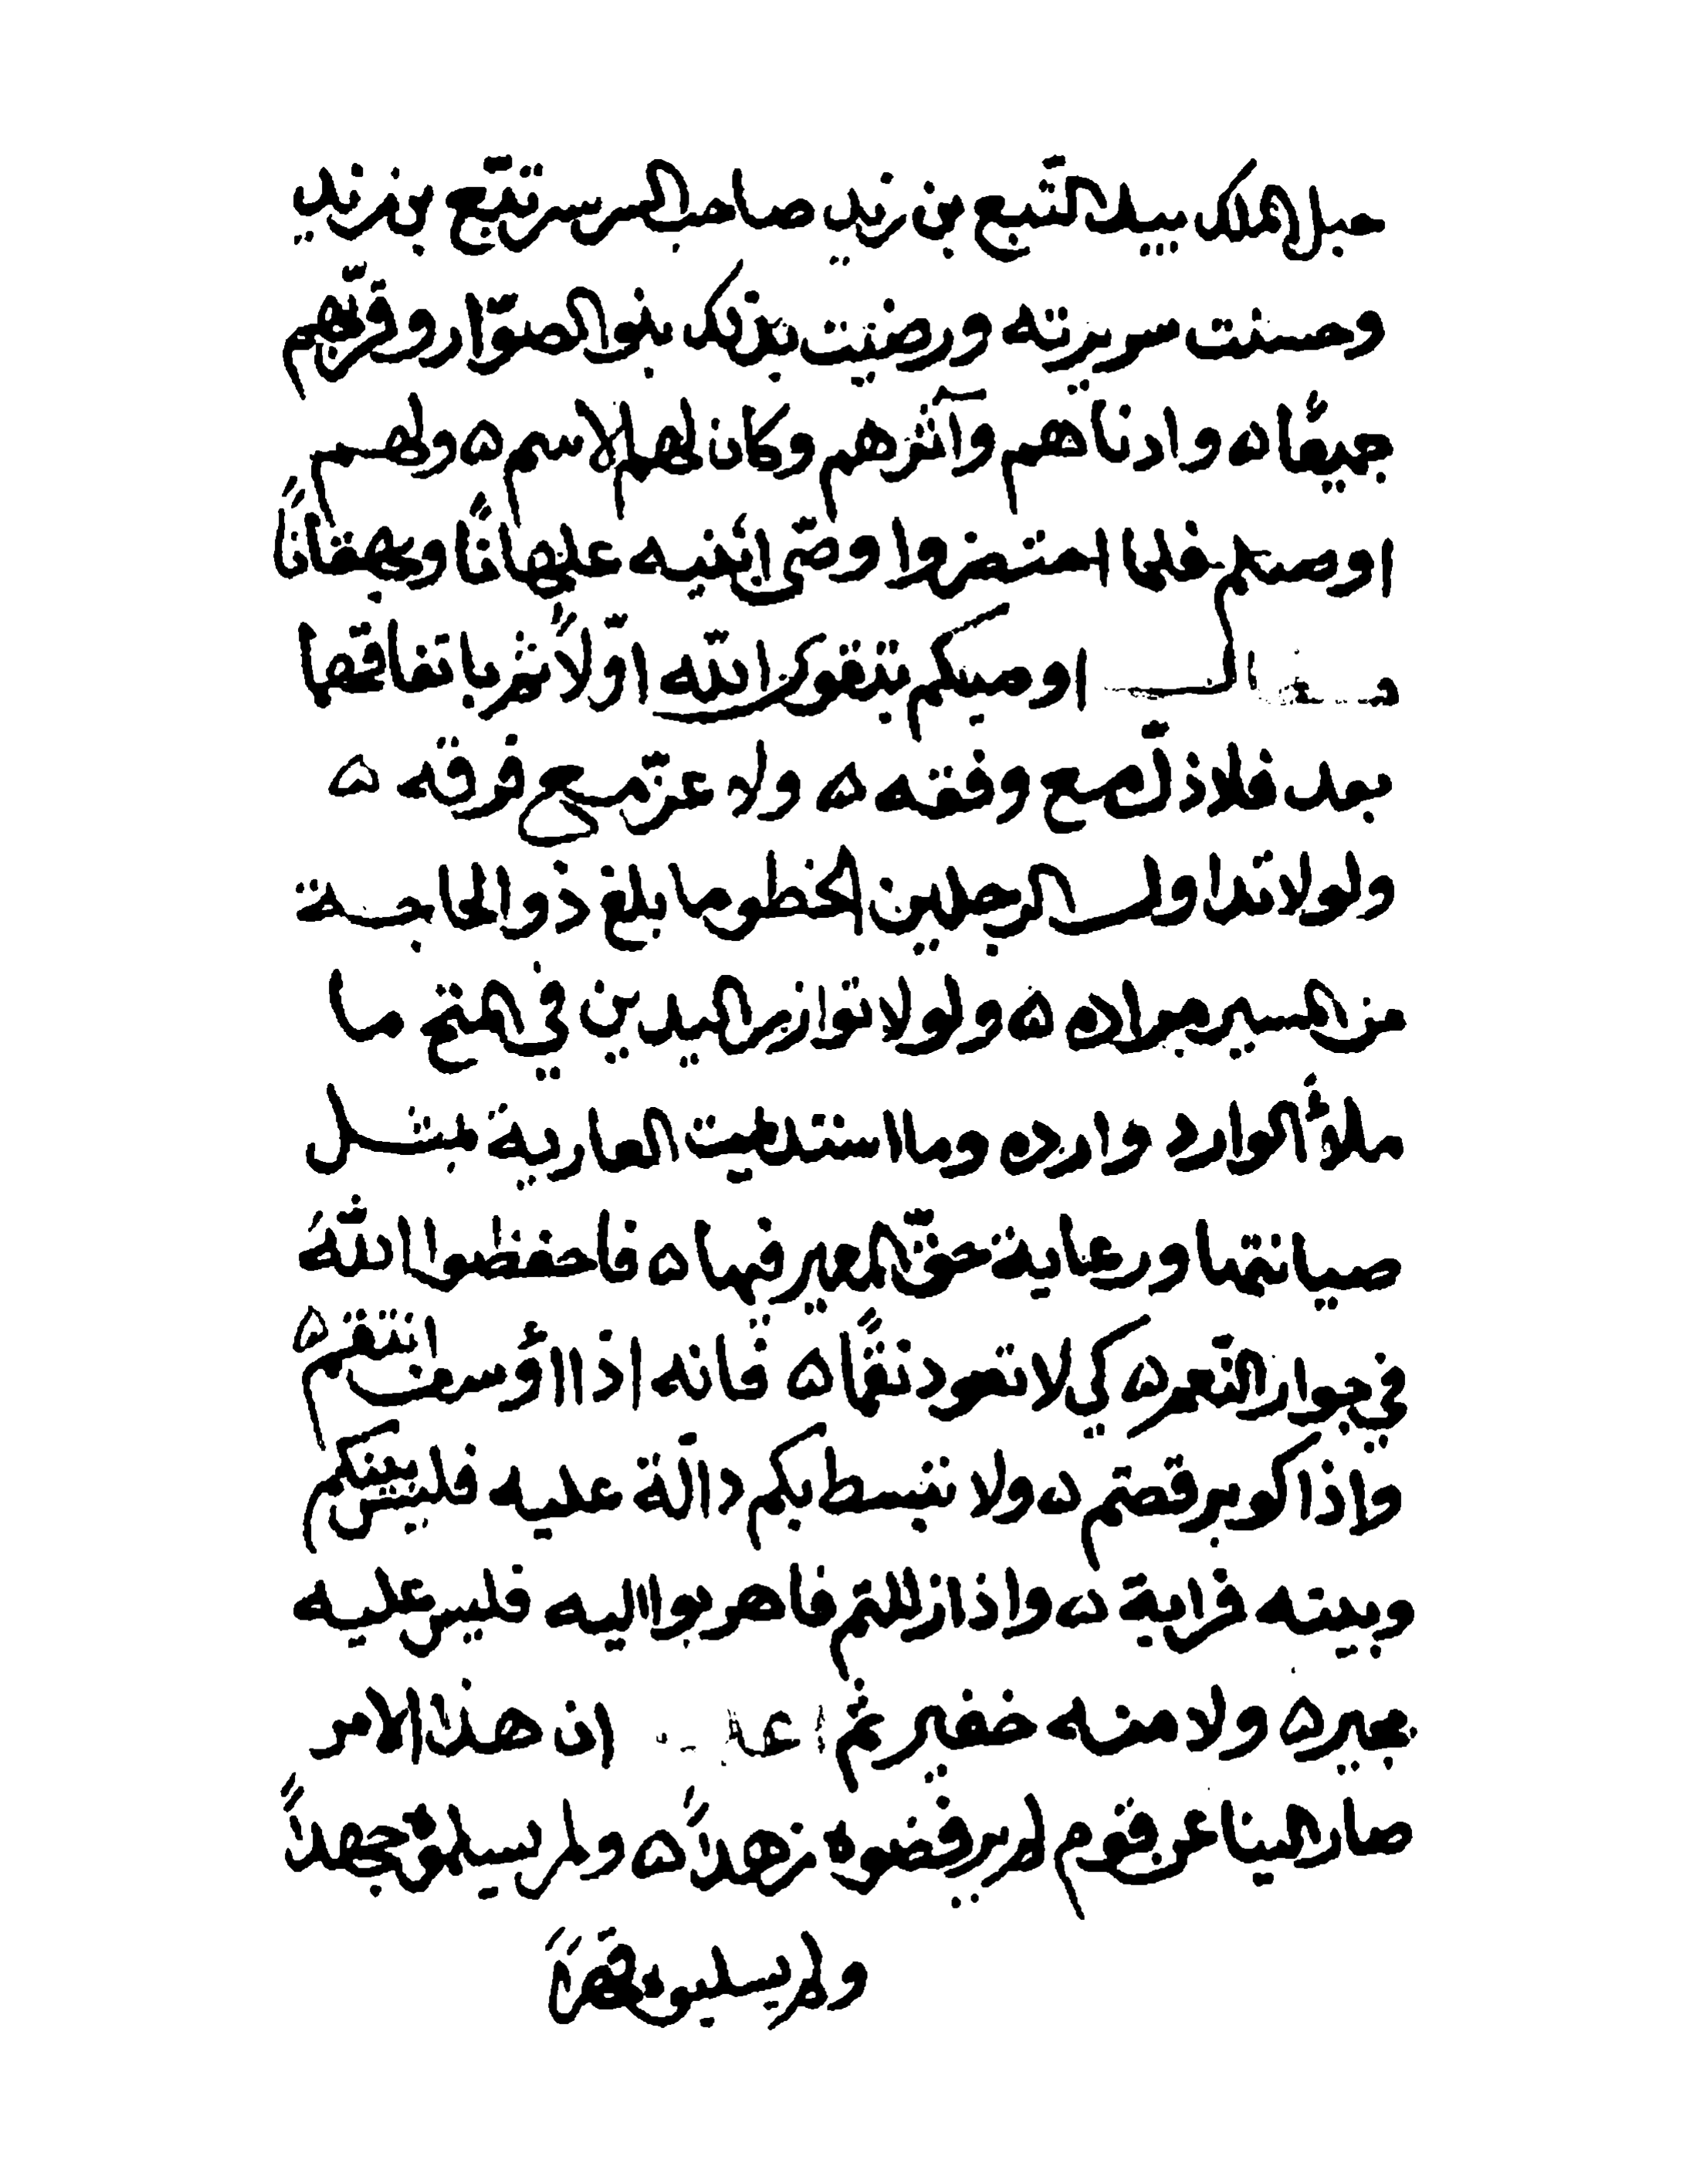 حبل الملك بيد التبع بن زيد صاحب الرس تبّع بن زيد
وحسنت سريرته ورضيت بذلك بنو الصوّار وقرّبهم
جميعًا ه وادناهم وآثرهم وكان لهم الاسم ه ولهم
اوصكم فلما احتضروا وصّى ابنيه علهانًا ونهفانًا
فقال اوصيكم بتقوى الله اوّلاً ثم باتفاقهما
بعد فلا ذلّ مع وفقه ه ولا عزّ مع فرقه ه
ولولا تداول الرجلين الخطو ما بلغ ذو الحاجة
من السير مراده ه ولولا توازر اليدين في المتح ما
ملؤ الوارد وارده وما استديمت العارية بمثل
صيانتها ورعاية حقّ المعير فيها ه فاحفظوا اللهَ
في جوار النّعم ه كي لا تعود نقمًا ه فانه اذا اؤسف انتقم ه
واذا كوبر قصم ه ولا تنبسط بكم دالّة عليه فليس بينكم
وبينه قرابة ه واذا زللتم فاهربوا اليه فليس عليه
مجير ه ولا منه خفير ثم ان هذا الامر
صار الينا عن قوم لم يرفضوه زهدًا ه ولم يسلموه جهدًا
ولم يسلبوه قهرًا